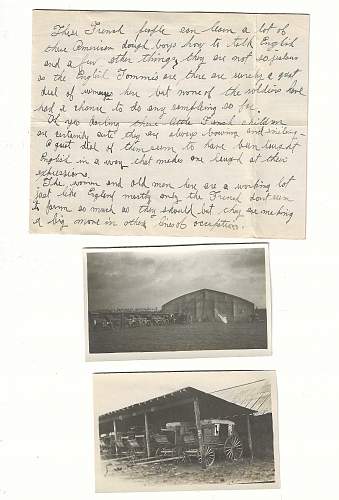 These French people can learn a lot of
these American dough boys how to talk English
and a few other things, they are not so jealous
as the English Tommies are, there are surely a great
deal of here but none of the soldiers have
had a chance to do any sampling so far.
Oh yes darling these little French children
are certainly cute they are always bowing and smiling -
A great deal of them seem to have been taught
English in a way that makes one laugh at their
expressions.
The women and old men here are a working lot
just like England mostly only the French don't seem
to farm as much as they should but they are making
a big in other lines of occupation.